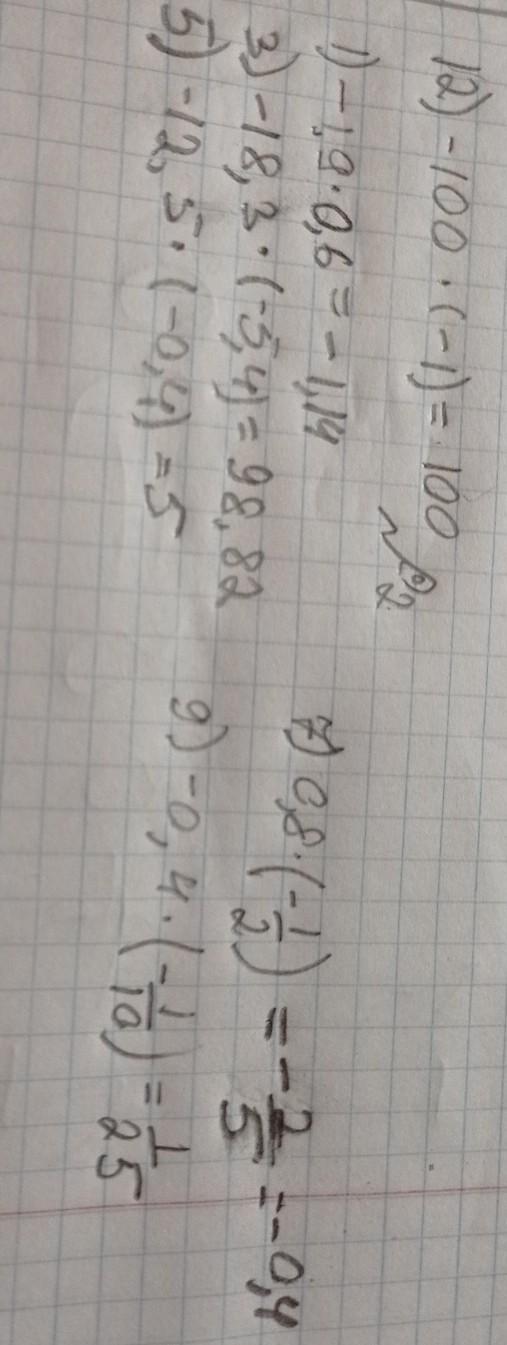 12) -100 · (-1) = 100
№2
1) -1,9 · 0,6 = -1,14
3) -18,3 · (-5,4) = 98,82
5) -12,5 · (-0,4) = 5
7) 0,8 · (-1/2) = -2/5 = -0,4
9) -0,4 · (-1/10) = 1/25